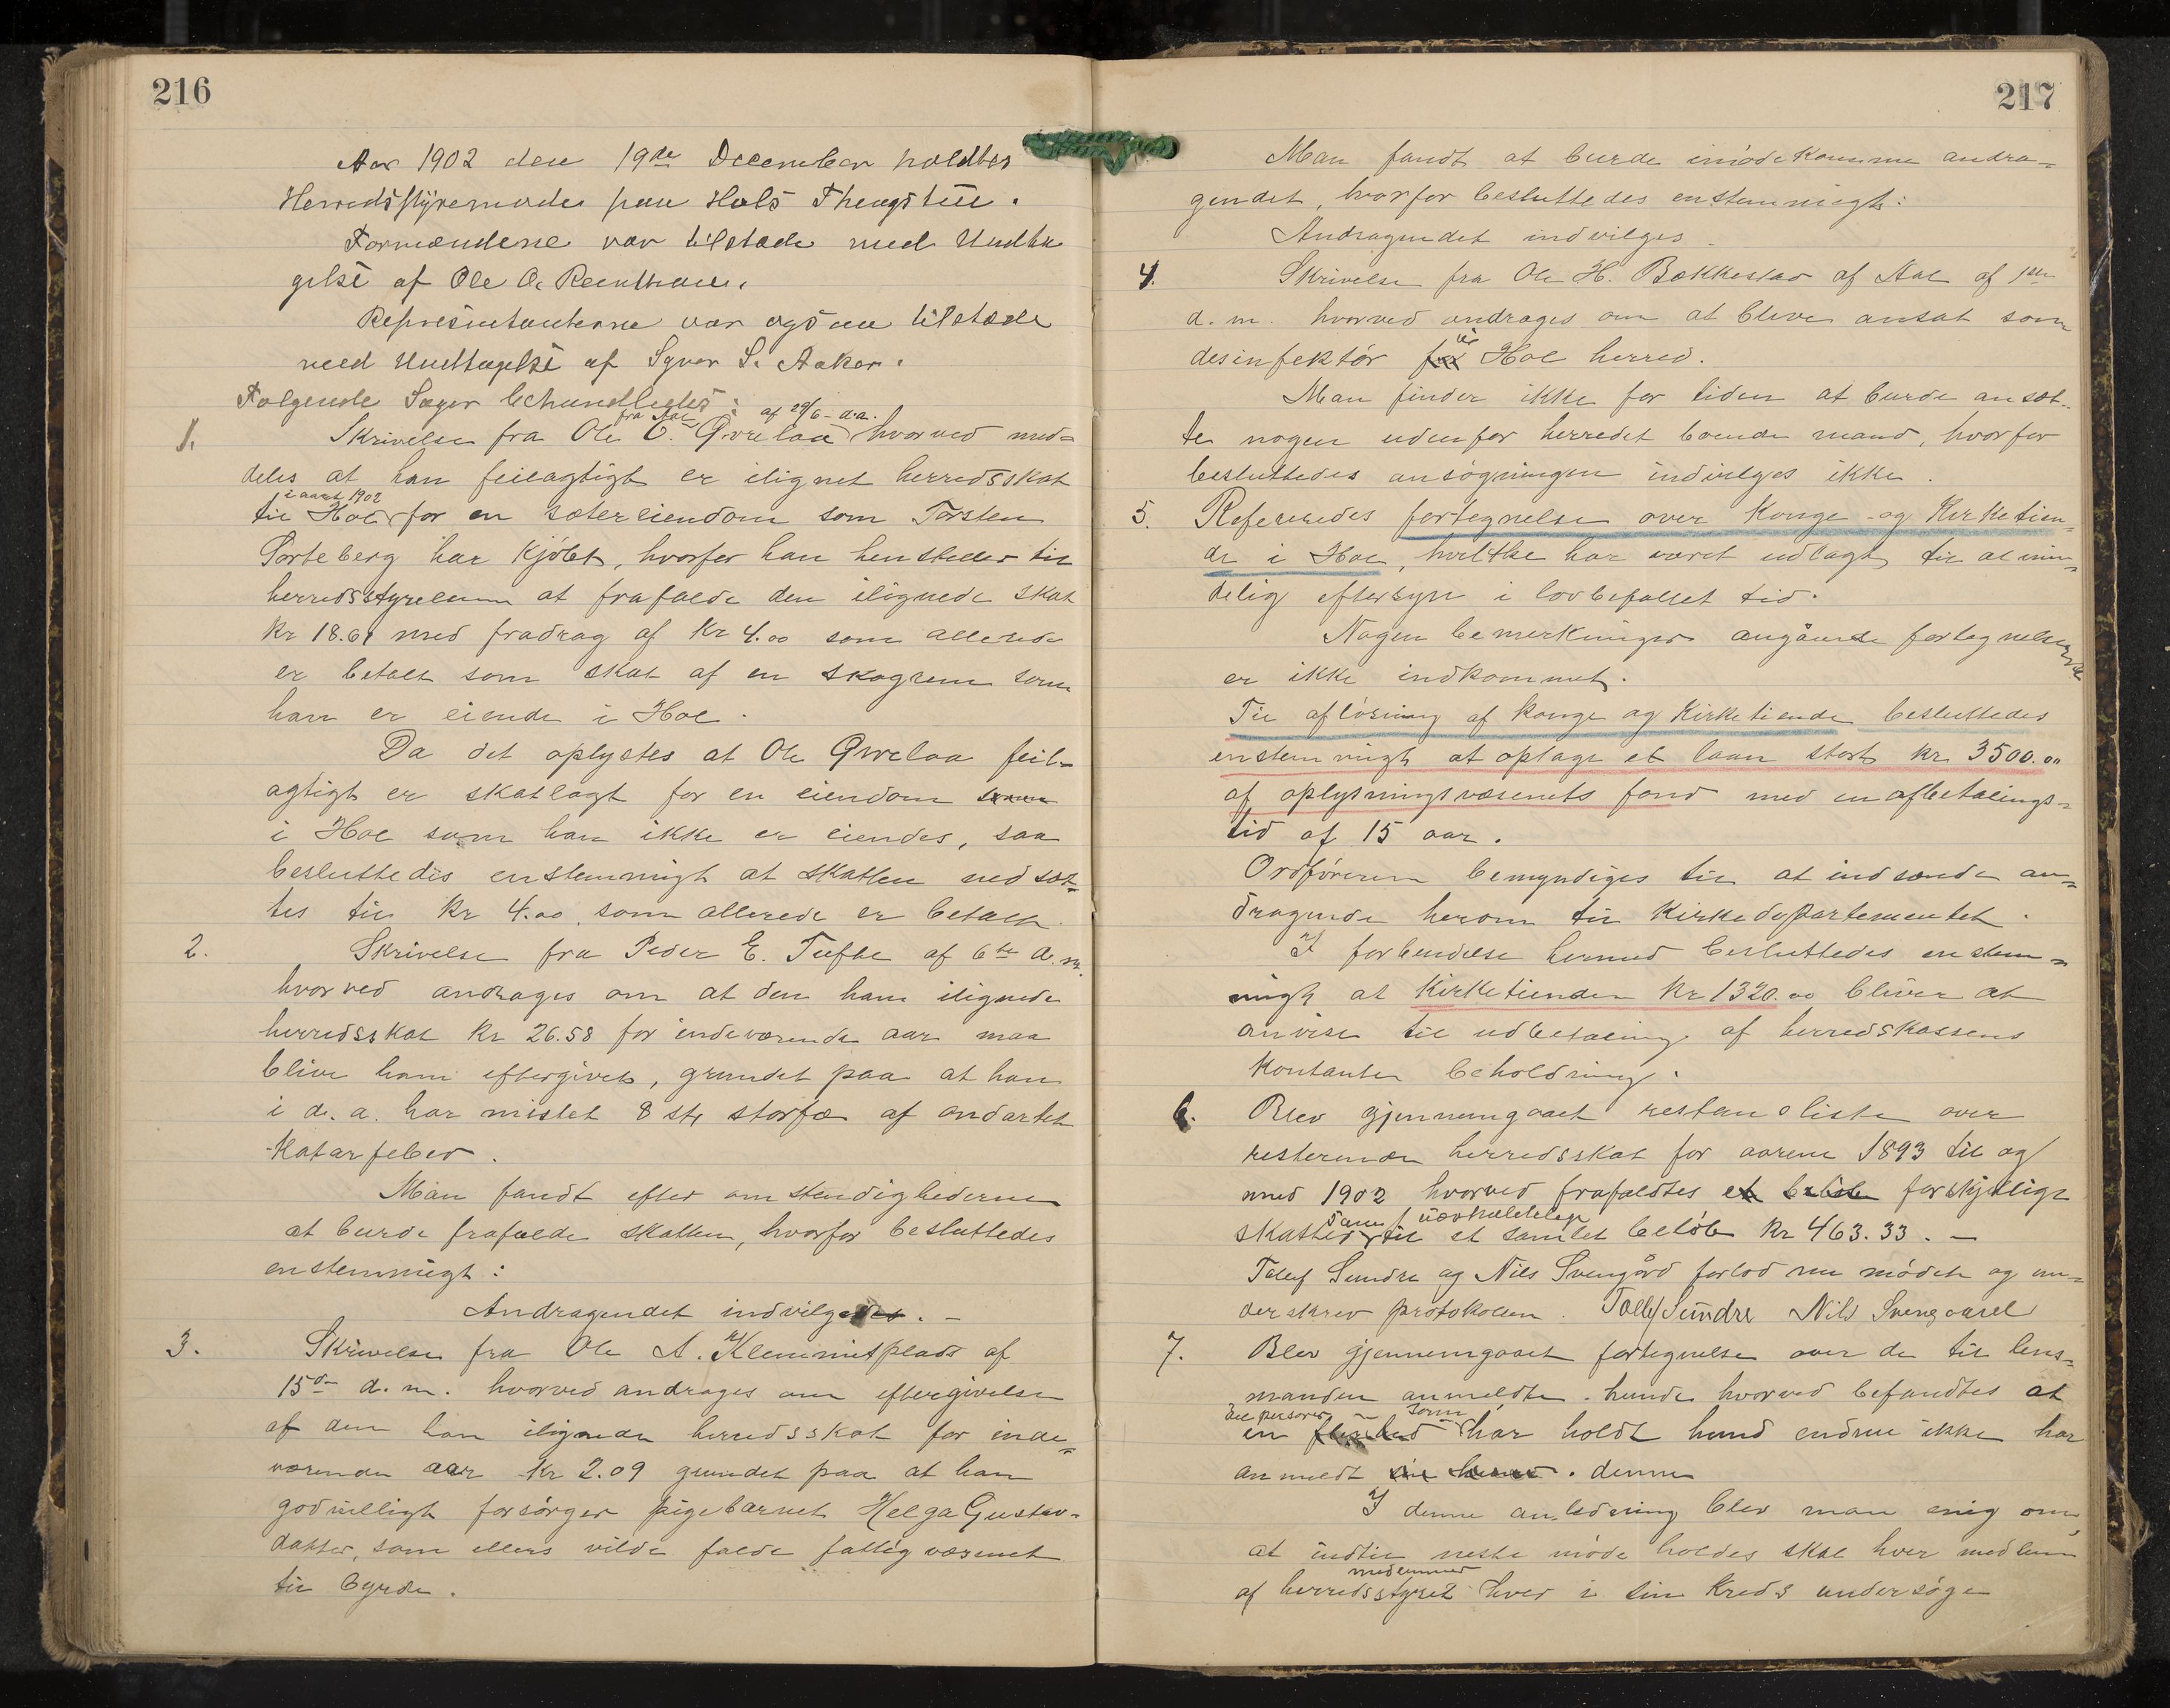 216
Aar 1902 den 19de December holdtes
Herredsstyremøde paa Hols Thingstue.
Formændene var tilstede med Undta
gelse af Ole O.
Representanterne var ogsaa tilstede
med Undtagelse af Syver S. Aaker.
Følgende Sager behandledes:
fra Aal af 29/6 - d.a.
1. Skrivelse fra Ole E. Qvrelaa hvorved med-
deles at han feilagtigt er ilignet herredsskat
i aaret 1902
til Hol for en sætereiendom som Torsten
Sorteberg har kjøbt, hvorfor han henstiller til
herredsstyrelsen at frafalde den ilignede skat
kr 18.61 med fradrag af kr 4.00 som allerede
er betalt som skat af en skogrem som
han er eiende i Hol.
Da det oplystes at Ole Qvrelaa feil-
agtigt er skatlagt for en eiendom som
i Hol som han ikke er eiendes, saa
besluttedes enstemmigt at skatten nedsæt-
tes til kr 4.00 som allerede er betalt.
2. Skrivelse fra Peder E. Tufte af 6te d.m.
hvorved andrages om at den ham ilignede
herredsskat kr 26.58 for indeværende aar maa
blive ham eftergivet, grundet paa at han
i d.a. har mistet 8 stk storfæ af ondartet
Katarfeber.
Man fandt efter omstendighederne
at burde frafalde skatten, hvorfor besluttedes
enstemmigt:
Andragendet indvilges. -
3. Skrivelse fra Ole A. Klemmetsplads af
15de d.m. hvorved andrages om eftergivelse
af den ham ilignede herredsskat for inde-
værende aar kr 2.09 grundet paa at han
godvilligt forsørger pigebarnet Helga Gustav-
datter, som ellers vilde falde fattigvæsenet
til byrde.
217
Man fandt at burde imødekomme andra-
gendet, hvorfor besluttedes enstemmigt:
Andragendet indvilges.
4. Skrivelse fra Ole H. Bækkestad af Aal af 1ste
d.m. hvorved andrages om at blive ansat som
i
desinfektør for Hol herred.
Man finder ikke for tiden at burde ansæt-
te nogen udenfor herredet boende mand, hvorfor
besluttedes ansøgningen indvilges ikke.
5. Refereredes fortegnelse over Konge- og Kirketien-
de i Hol, hvilke har været udlagt til almin-
delig eftersyn i lovbefalet tid.
Nogen bemerkninger angående fortegnelserne
er ikke indkommet.
Til afløsning af konge og Kirketiende besluttedes
enstemmigt at optage et laan stort kr. 3500.00
af oplysningsvæsenets fond med en afbetalings-
tid af 15 aar.
Ordføreren bemyndiges til at indsende an-
dragende herom til Kirkedepartementet.
I forbindelse hermed besluttedes enstem-
migt at Kirketienden kr 1320.00 bliver at
anvise til udbetaling af herredskassens
kontante beholdning.
6. Blev gjennemgaaet restanseliste over
resterende herredsskat for aarene 1893 til og
med 1902 hvorved frafaldtes et beløb forskjellige
som uerholdelige
skatter til et samlet beløb kr 463.33. -
Tollef Sundre og Nils Svengård forlod nu mødet og un-
derskrev protokollen. Tollef Sundre Nils Svengaard
7. Blev gjennemgaaet fortegnelse over de til lens-
manden anmeldte hunde hvorved befandtes at
del personer som
en flerhed har holdt hund endnu ikke har
anmeldt sin hund. denne
I denne anledning blev man enig om,
at indtil neste møde holdes skal hver medlem
medlemmer
af herredsstyret hver i sin Kreds undersøge